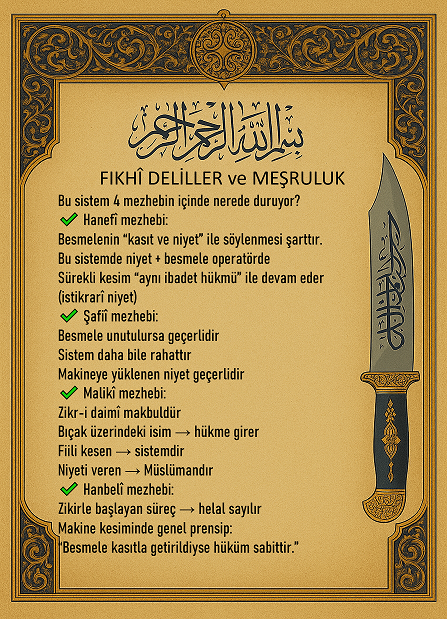 بسم الله الرحمن الرحيم
FIKHÎ DELİLLER ve MEŞRULUK
Bu sistem 4 mezhebin içinde nerede duruyor?
✔ Hanefî mezhebi:
Besmelenin “kasıt ve niyet” ile söylenmesi şarttır.
Bu sistemde niyet + besmele operatörde
Sürekli kesim “aynı ibadet hükmü” ile devam eder
(istikrarî niyet)
✔ Şafiî mezhebi:
Besmele unutulursa geçerlidir
Sistem daha bile rahattır
Makineye yüklenen niyet geçerlidir
✔ Malikî mezhebi:
Zikr-i daimî makbuldür
Bıçak üzerindeki isim → hükme girer
Fiili kesen → sistemdir
Niyeti veren → Müslümandır
✔ Hanbelî mezhebi:
Zikirle başlayan süreç → helal sayılır
Makine kesiminde genel prensip:
“Besmele kasıtla getirildiyse hüküm sabittir.”